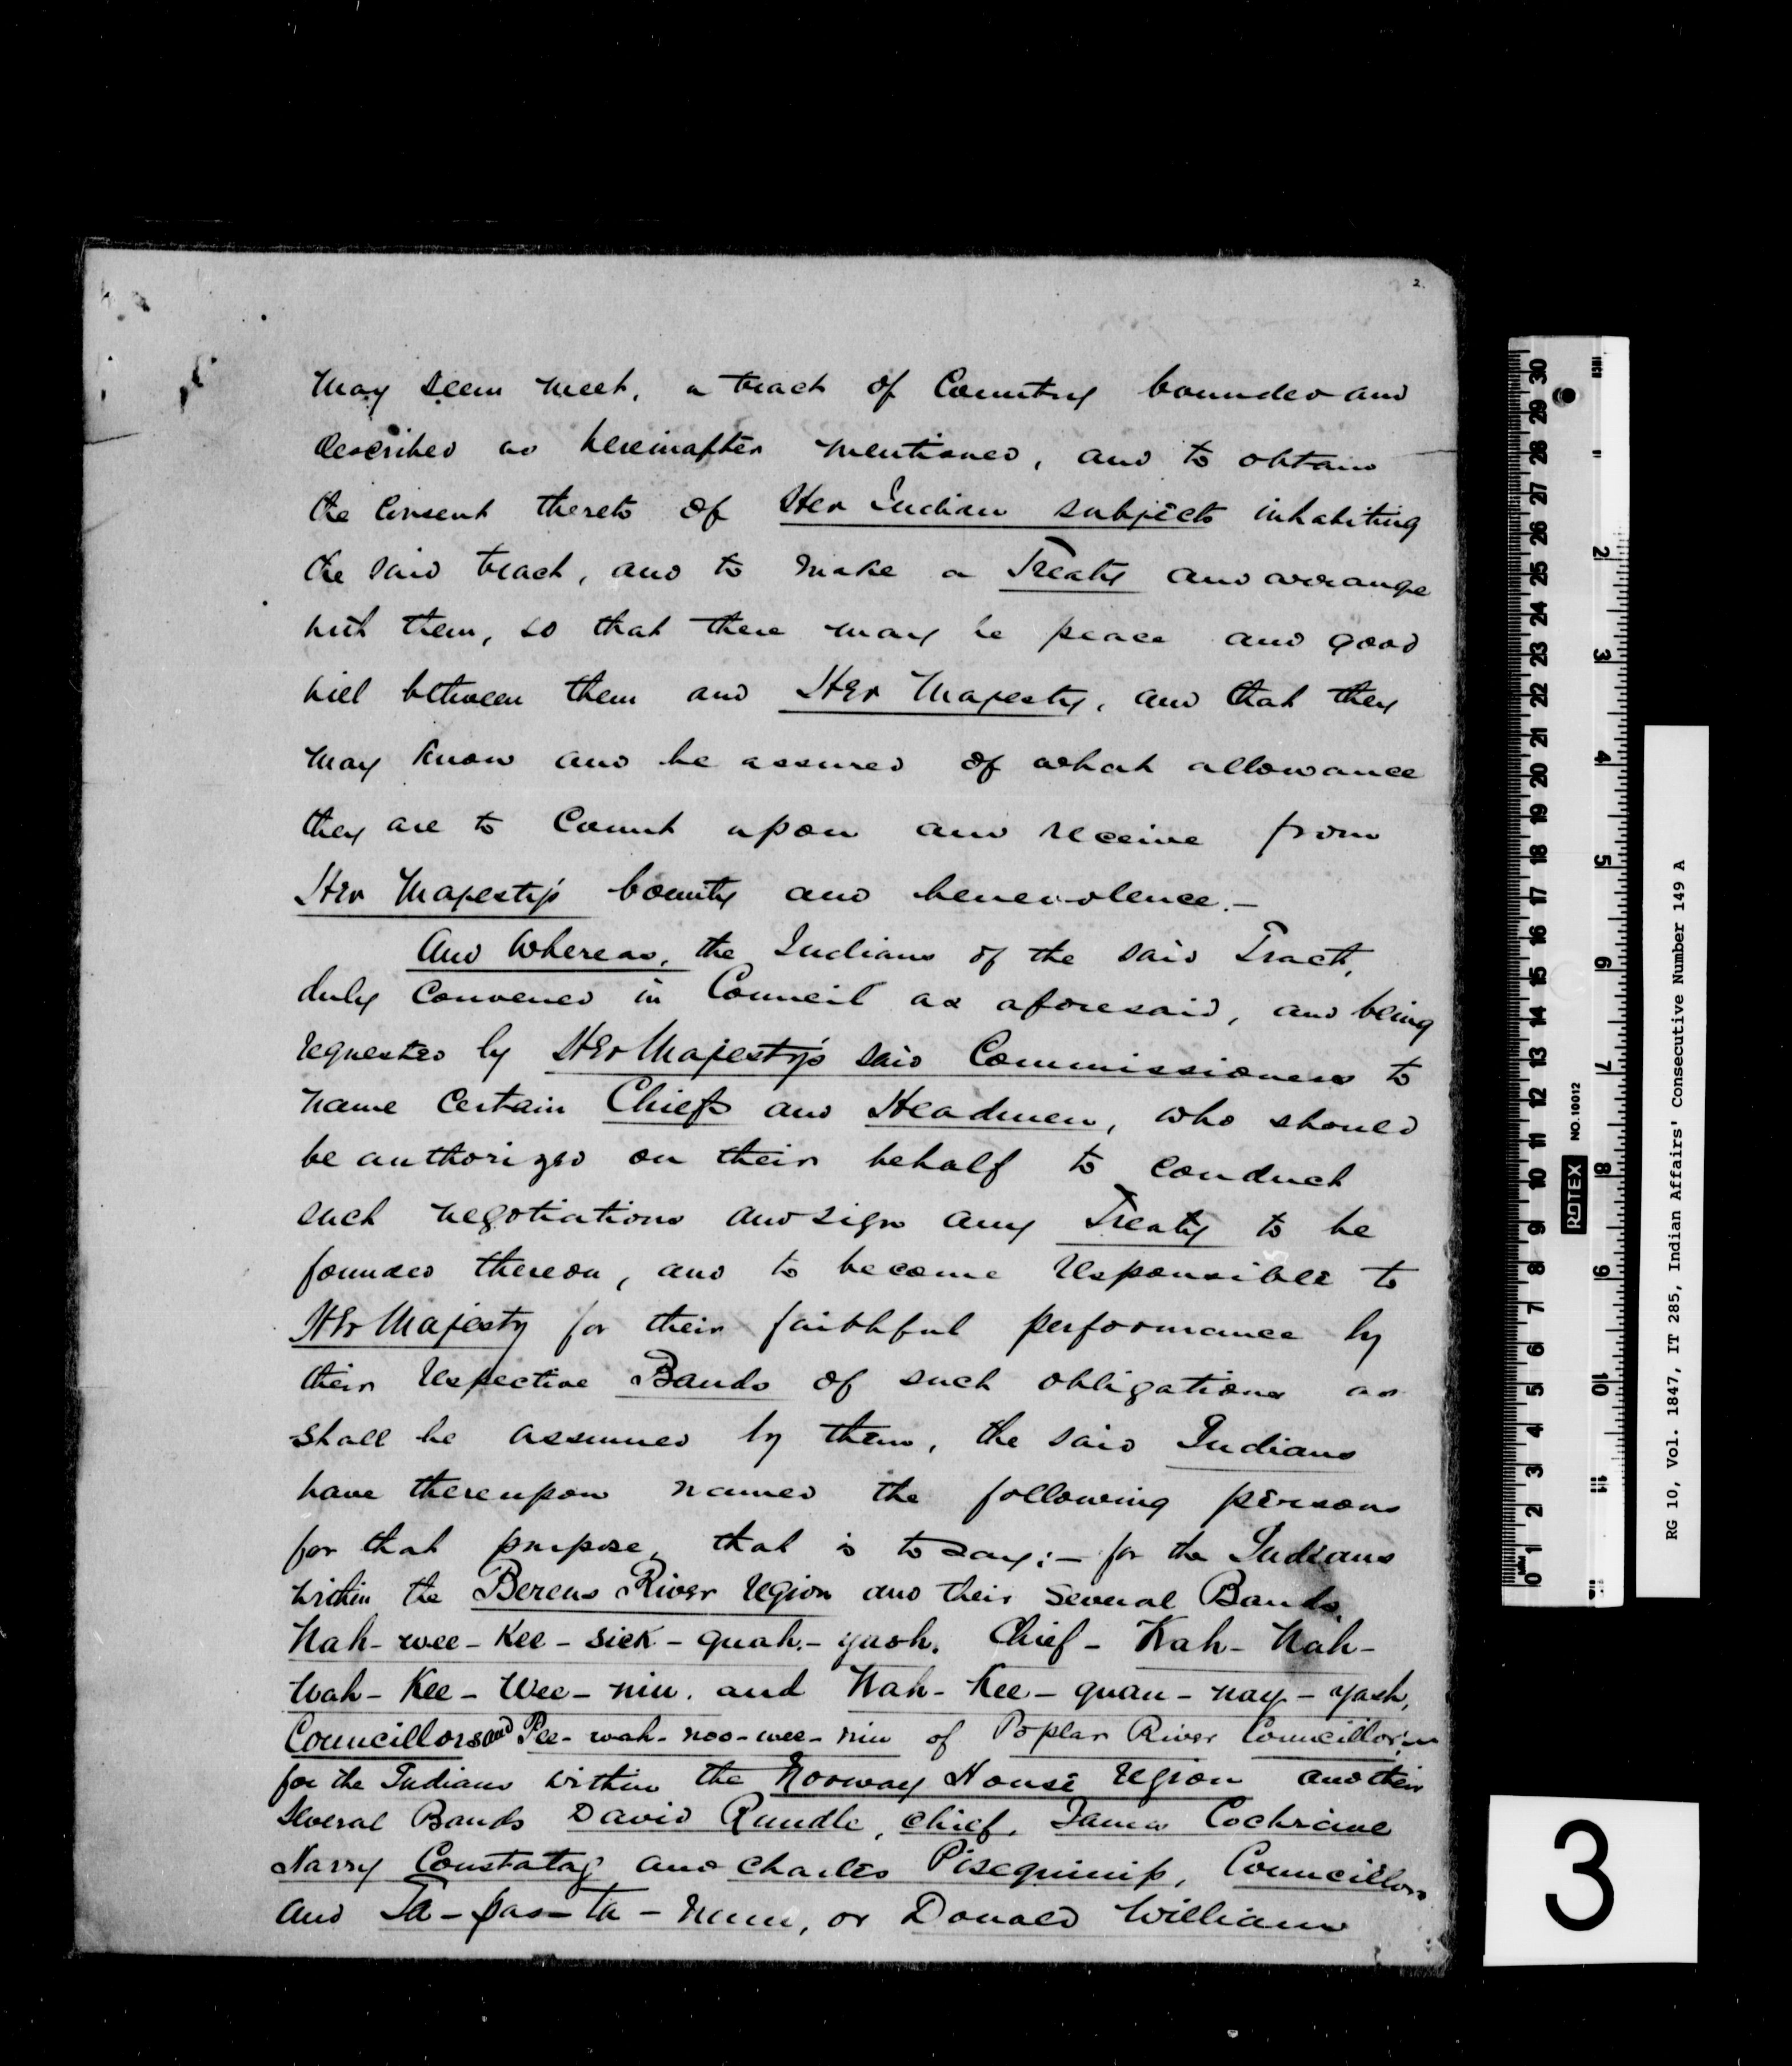 2.
may seem meet, a tract of Country bounded and
described as hereinafter mentioned, and to obtain
the consent thereto of Her Indian subjects inhabiting
the said tract, and to make a Treaty and arrange
with them, so that there may be peace and good
will between them and Her Majesty, and that they
may know and be assured of what allowance
they are to Count upon and receive from
Her Majesty's bounty and benevolence.—
And Whereas, the Indians of the said Tract,
duly convened in Council as aforesaid, and being
requested by Her Majesty's said Commissioners to
name certain Chiefs and Headmen, who should
be authorized on their behalf to conduct
such negotiations and sign any Treaty to be
founded thereon, and to become responsible to
Her Majesty for their faithful performance by
their respective Bands of such obligations as
shall be assumed by them, the said Indians
have thereupon named the following persons
for that purpose, that is to say:— for the Indians
within the Berens River region and their Several Bands,
Nah-wee-Kee-sick-quah-yash, Chief - Kah-Nah-
wah-Kee-Wee-nin. and Nah-Kee-quan-nay-yash,
Councillors and Pee-wah-noo-wee-nin of Poplar River Councillor;
for the Indians within the Norway House region and their
several Bands David Rundle, chief, James Cochrane
Harry Constatag and Charles Pisequinip, Councillors
and Ta-pas-ta-num, or Donald William
ROTEX NO. 10012
RG 10, Vol. 1847, IT 285, Indian Affairs' Consecutive Number 149 A
3